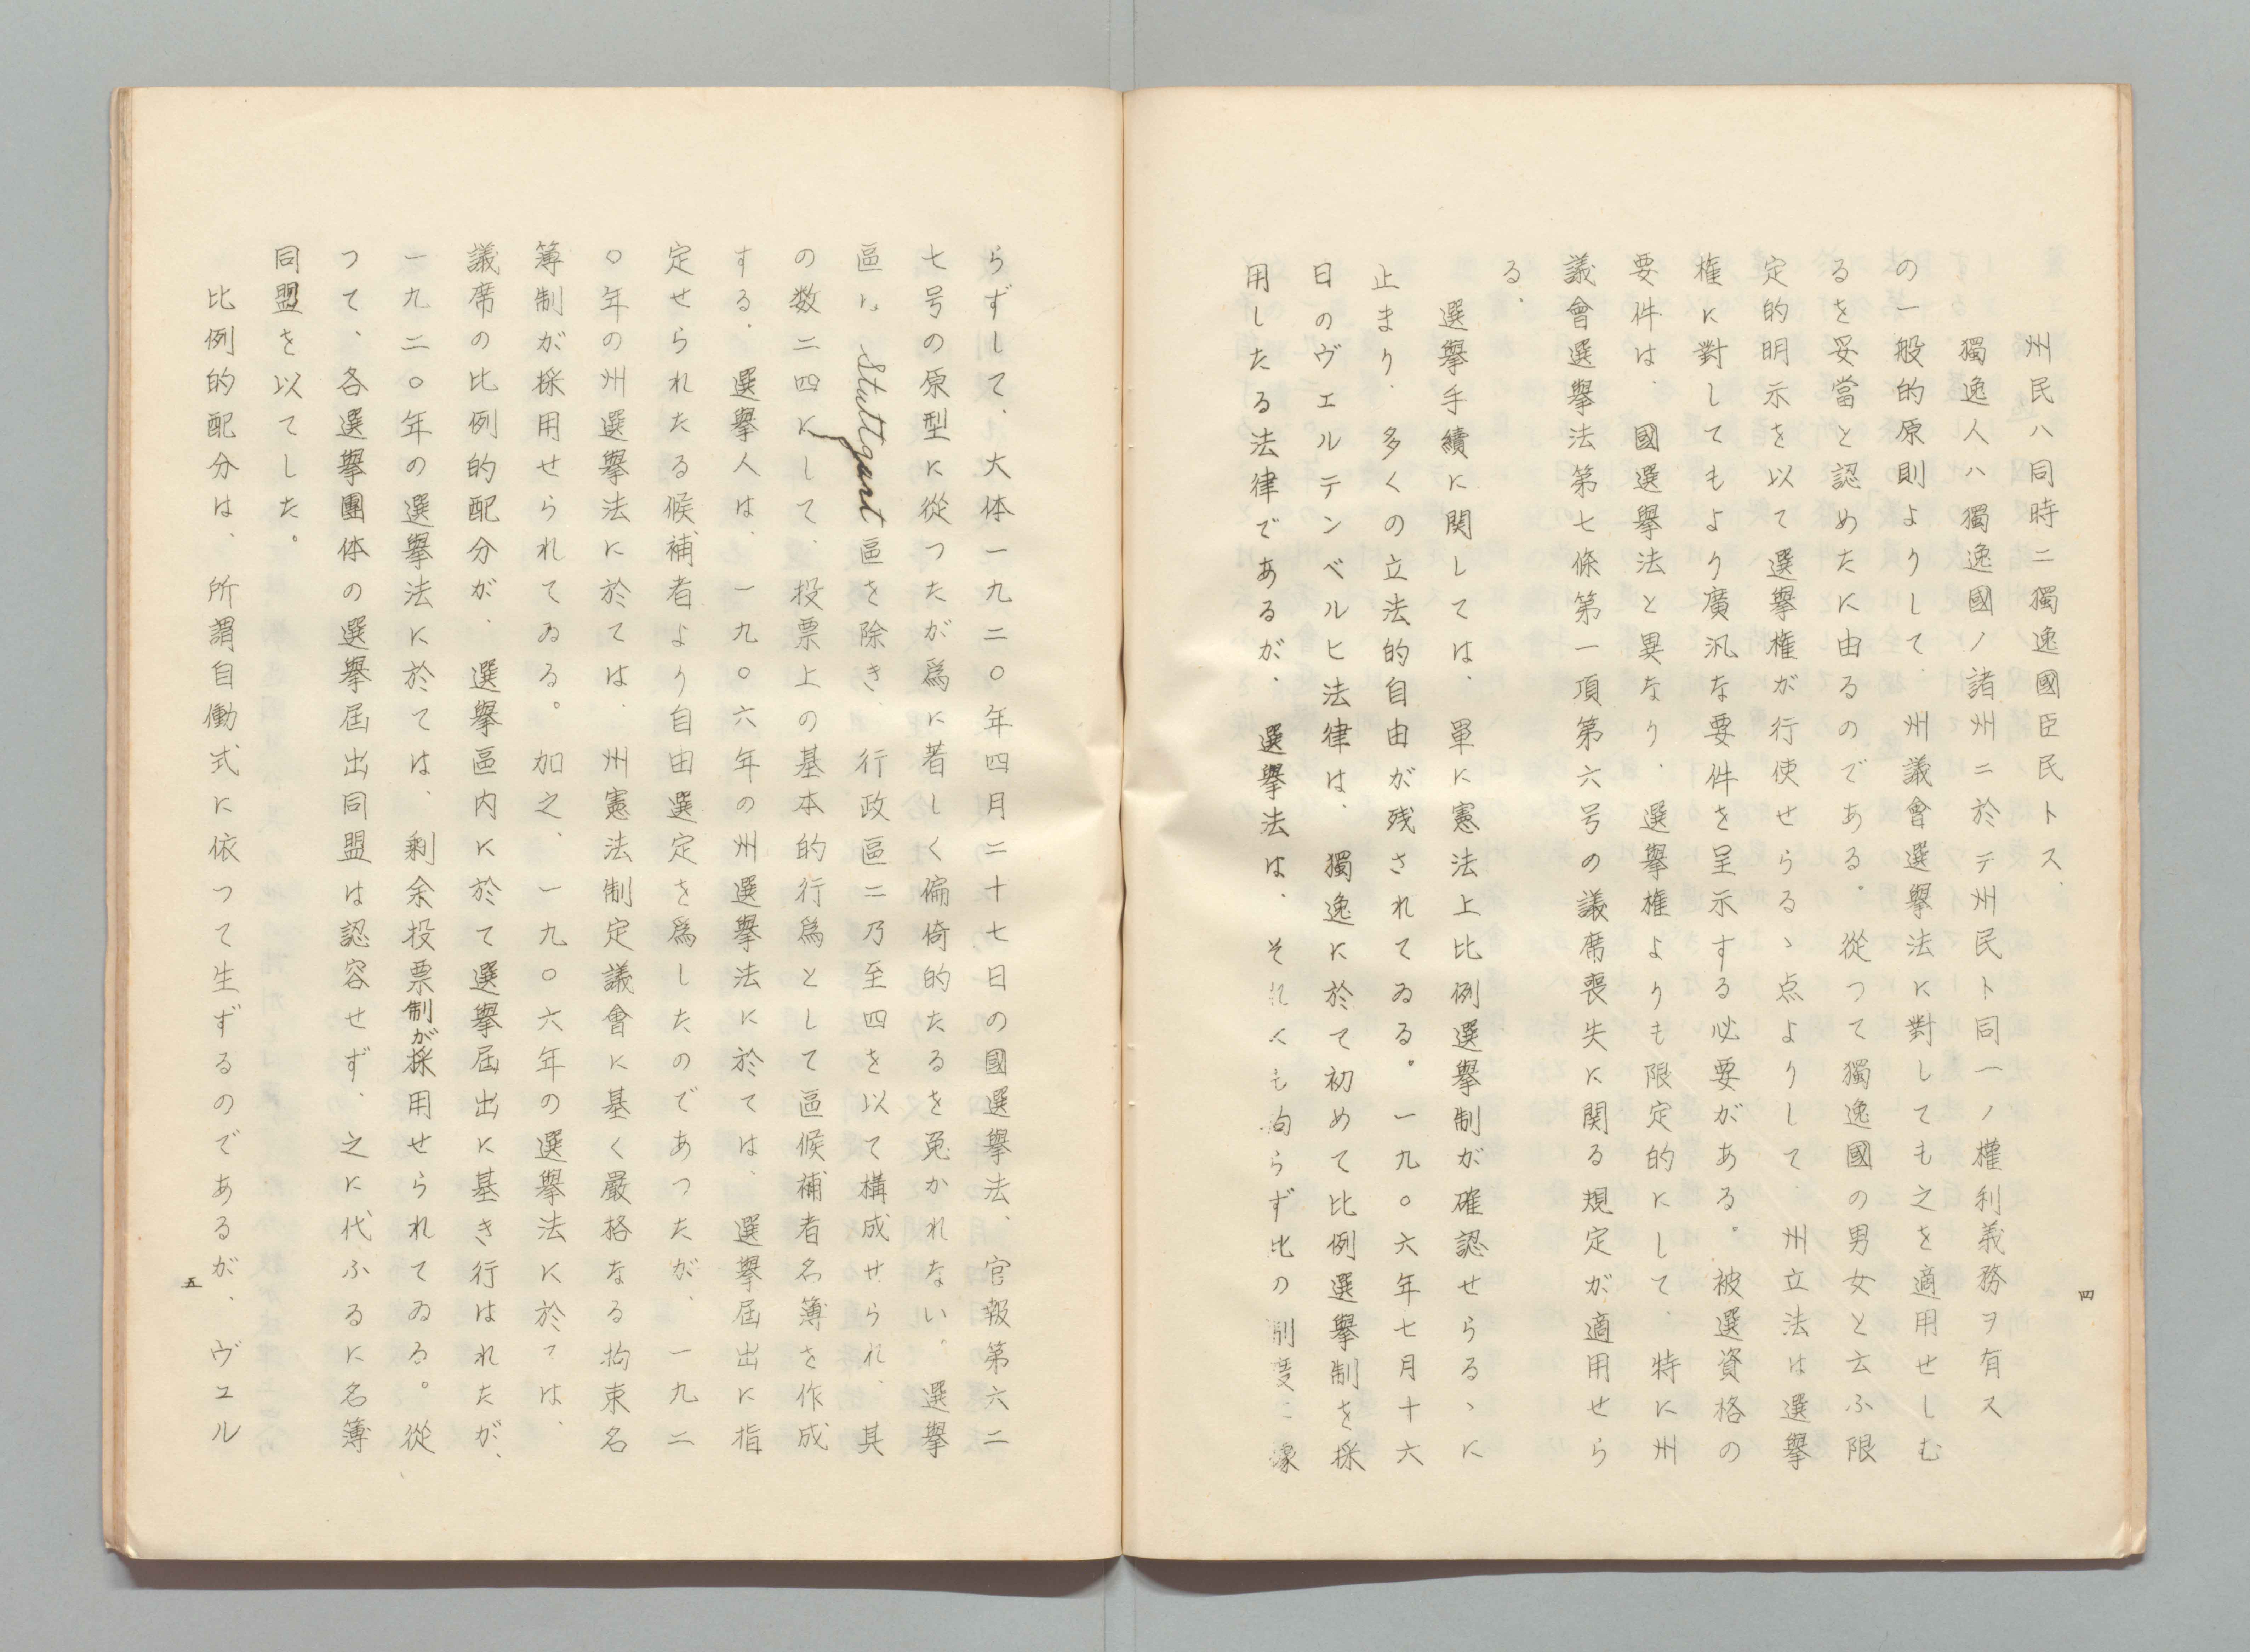 州民ハ同時ニ獨逸國臣民トス、
獨逸人ハ獨逸國ノ諸州ニ於テ州民ト同一ノ權利義務ヲ有ス
の一般的原則よりして、州議會選擧法に對しても之を適用せしむ
るを妥當と認めたに由るのである。從つて獨逸國の男女と云ふ限
定的明示を以て選擧権が行使せらるゝ点よりして、州立法は選擧
権に對してもより廣汎な要件を呈示する必要がある。被選資格の
要件は、國選擧法と異なり、選擧権よりも限定的にして、特に州
議會選擧法第七條第一項第六号の議席喪失に関る規定が適用せら
る、
選擧手續に関しては、單に憲法上比例選擧制が確認せらるゝに
止まり、多くの立法的自由が残されてゐる。一九〇六年七月十六
日のヴェルテンベルヒ法律は、獨逸に於て初めて比例選擧制を採
用したる法律であるが、選擧法は、それにも拘らず此の制度に
四
らずして、大体一九二〇年四月二十七日の國選擧法、官報第六二
七号の原型に從つたが爲に若しく偏倚的たるを免かれない。選擧
區は、Stuttgart區を除き、行政區二乃至四を以て構成せられ、其
の数二四にして、投票上の基本的行爲として區候補者名簿を作成
する、選擧人は、一九〇六年の州選擧法に於ては、選擧届出に指
定せられたる候補者より自由選定を爲したのであつたが、一九二
〇年の州選擧法に於ては、州憲法制定議會に基く嚴格なる拘束名
簿制が採用せられてゐる。加之、一九〇六年の選擧法に於ては、
議席の比例的配分が、選擧區内に於て選擧届出に基き行はれたが、
一九二〇年の選擧法に於ては、剰余投票制が採用せられてゐる。從
つて、各選擧團体の選擧届出同盟は認容せず、之に代ふるに名簿
同盟を以てした。
比例的配分は、所謂自働式に依つて生ずるのであるが、ヴェル
五